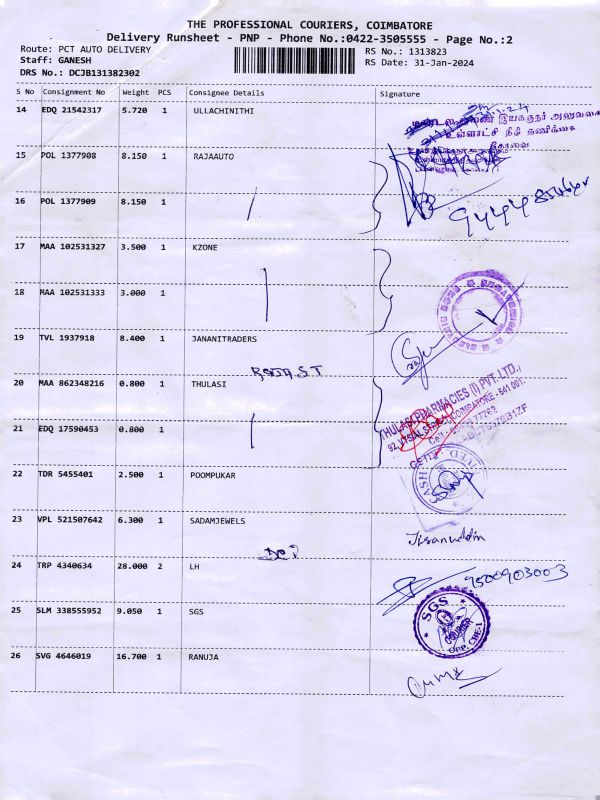 THE PROFESSIONAL COURIERS, COIMBATORE
Delivery Runsheet - PNP - Phone No.:0422-3505555 - Page No.:2
Route: PCT AUTO DELIVERY RS No.: 1313823
Staff: GANESH RS Date: 31-Jan-2024
DRS No.: DCJB131382302
S No Consignment No Weight PCS Consignee Details Signature
14 EDQ 21542317 5.720 1 ULLACHINITHI
உள்ளாட்சி நிதி தணிக்கை
கோவை
15 POL 1377908 8.150 1 RAJAAUTO
16 POL 1377909 8.150 1
17 MAA 102531327 3.500 1 KZONE
18 MAA 102531333 3.000 1
19 TVL 1937918 8.400 1 JANANITRADERS
20 MAA 862348216 0.800 1 THULASI
THULASI PHARMACIES (I) PVT. LTD.,
COIMBATORE - 641 001.
21 EDQ 17590453 0.800 1
22 TDR 5455401 2.500 1 POOMPUKAR
CASH
23 VPL 521507642 6.300 1 SADAMJEWELS
24 TRP 4340634 28.000 2 LH
9500903003
25 SLM 338555952 9.050 1 SGS
SGS
COURIER
26 SVG 4646019 16.700 1 RANUJA